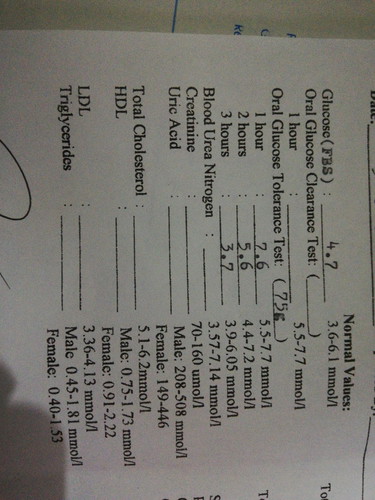 Date:
Normal Values:
Glucose (FBS) : 4.7 3.6-6.1 mmol/l
Oral Glucose Clearance Test: ( )
1 hour : 5.5-7.7 mmol/l
Oral Glucose Tolerance Test: ( 75g )
1 hour : 7.6 5.5-7.7 mmol/l
2 hours : 5.6 4.4-7.2 mmol/l
3 hours : 3.7 3.9-6.05 mmol/l
Blood Urea Nitrogen : 3.57-7.14 mmol/l
Creatinine : 70-160 umol/l
Uric Acid Male: 208-508 mmol/l
Female: 149-446
Total Cholesterol : 5.1-6.2mmol/l
HDL : Male: 0.75-1.73 mmol/l
Female: 0.91-2.22
LDL : 3.36-4.13 mmol/l
Triglycerides : Male 0.45-1.81 mmol/l
Female: 0.40-1.53